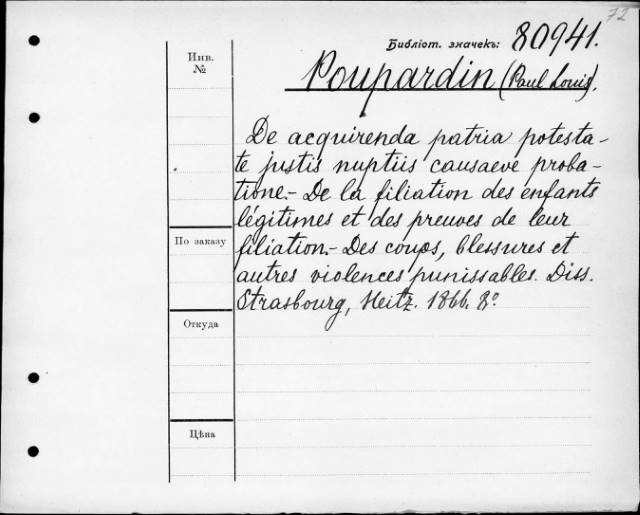 72
Библіот. значекъ: 80941.
Инв.
№
Poupardin (Paul Louis).
De acquirenda patria potesta-
te justis nuptiis causaeve proba-
tione.- De la filiation des enfants
légitimes et des preuves de leur
По заказу
filiation.- Des coups, blessures et
autres violences punissables. Diss.
Strasbourg, Heitz. 1866. 8º
Откуда
Цѣна